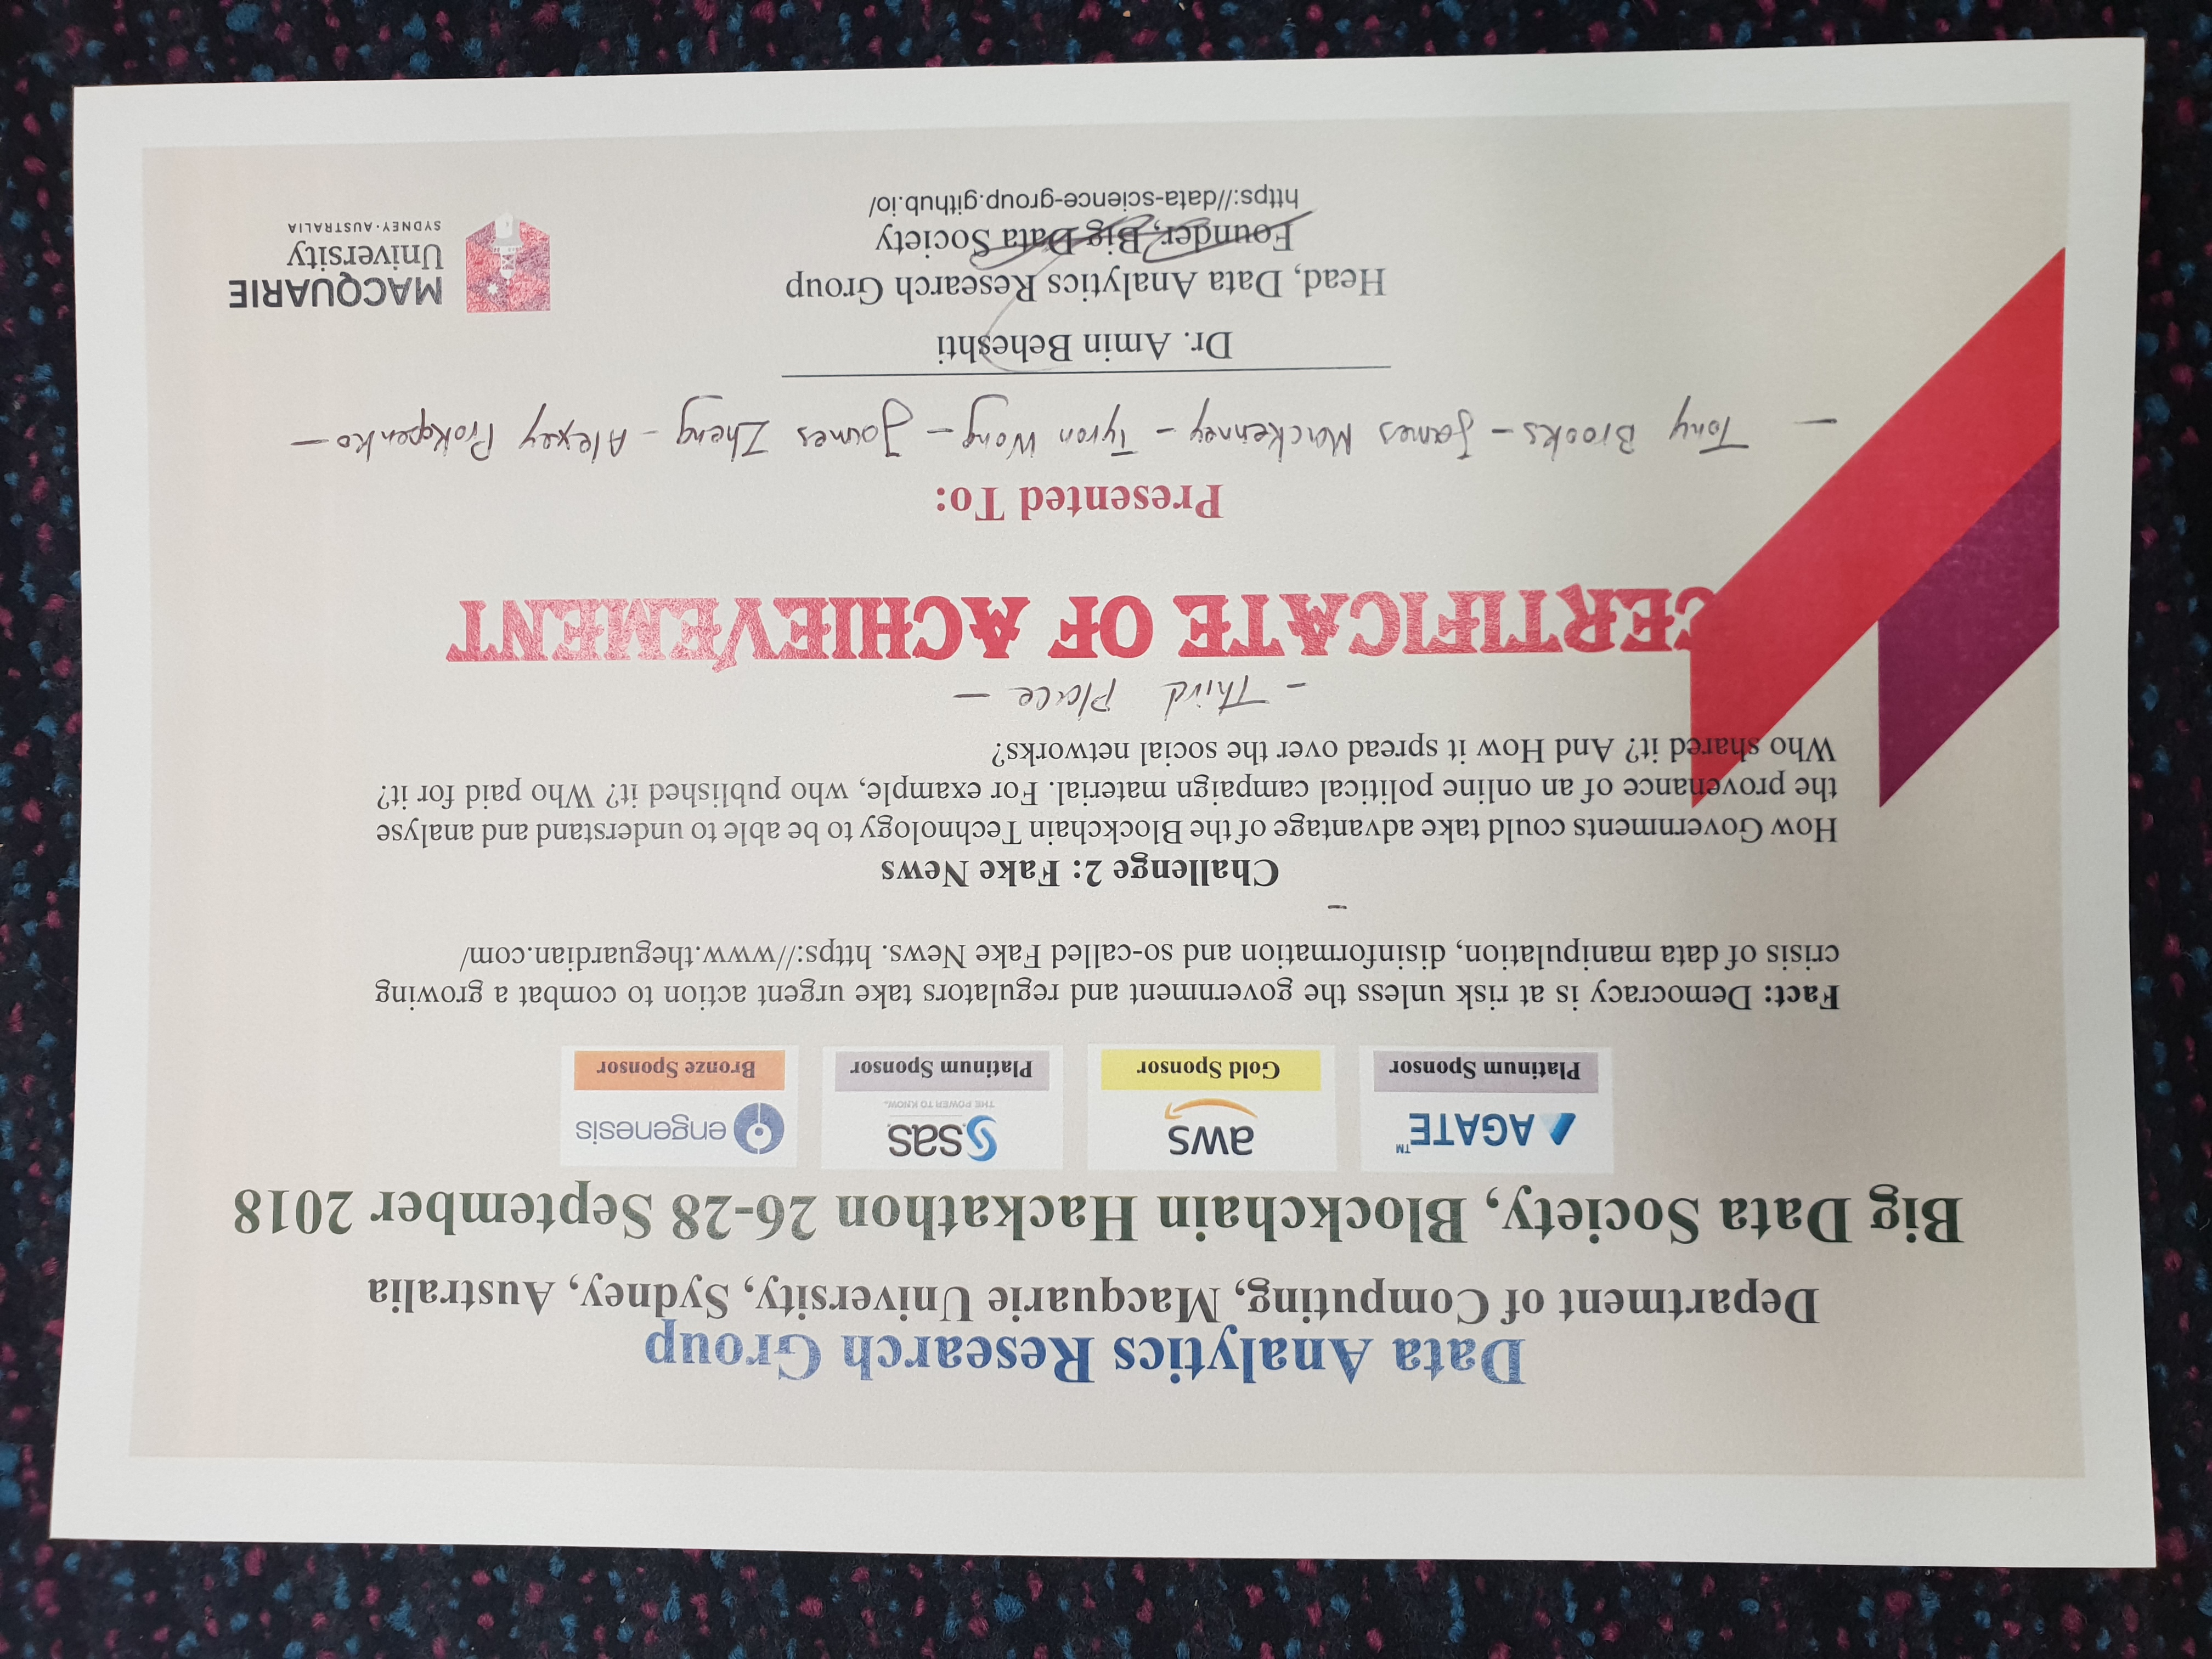 Data Analytics Research Group
Department of Computing, Macquarie University, Sydney, Australia
Big Data Society, Blockchain Hackathon 26-28 September 2018
AGATE™
Platinum Sponsor
aws
Gold Sponsor
sas
THE POWER TO KNOW.
Platinum Sponsor
engenesis
Bronze Sponsor
Fact: Democracy is at risk unless the government and regulators take urgent action to combat a growing
crisis of data manipulation, disinformation and so-called Fake News. https://www.theguardian.com/
Challenge 2: Fake News
How Governments could take advantage of the Blockchain Technology to be able to understand and analyse
the provenance of an online political campaign material. For example, who published it? Who paid for it?
Who shared it? And How it spread over the social networks?
- Third Place -
CERTIFICATE OF ACHIEVEMENT
Presented To:
- Tony Brooks - James Mackenney - Tyron Wong - James Zheng - Alexey Prokopenko -
Dr. Amin Beheshti
Head, Data Analytics Research Group
Founder, Big Data Society
https://data-science-group.github.io/
MACQUARIE
University
SYDNEY·AUSTRALIA